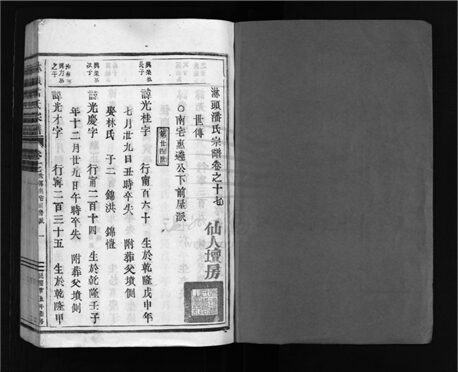 淋頭潘氏宗譜卷之十七
世傳
仙人壇房
○南宅惠遶公下前屋派
第廿四世
興榮公長子
諱光桂字 行甯百六十 生於乾隆戊申年
七月廿九日丑時卒失 附葬父墳側
興榮公次子
諱光慶字 行甯二百十四 生於乾隆壬子
娶林氏 子二 錦洪 錦愷
年十二月廿九日午時卒失 附葬父墳側
之子
諱光才字 行甯二百三十五 生於乾隆甲